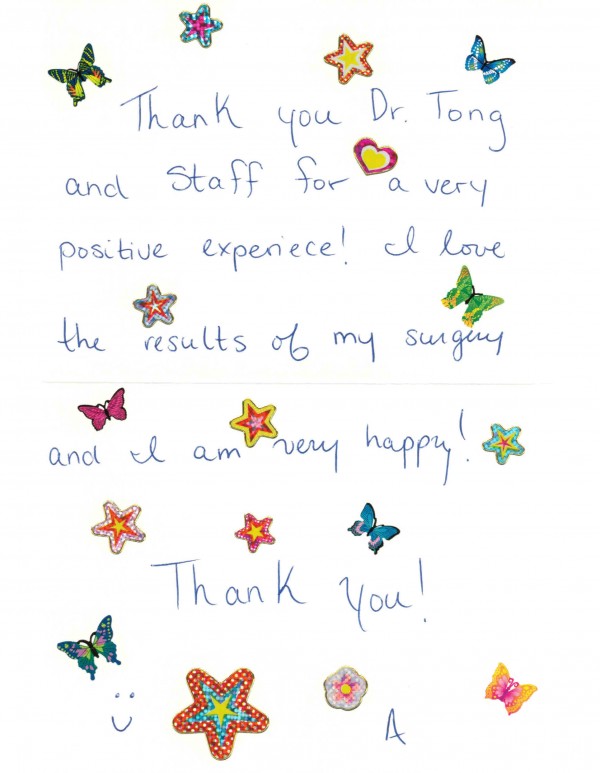 Thank you Dr. Tong
and Staff for a very
positive experiece! I love
the results of my surgery
and I am very happy!
Thank You!
A